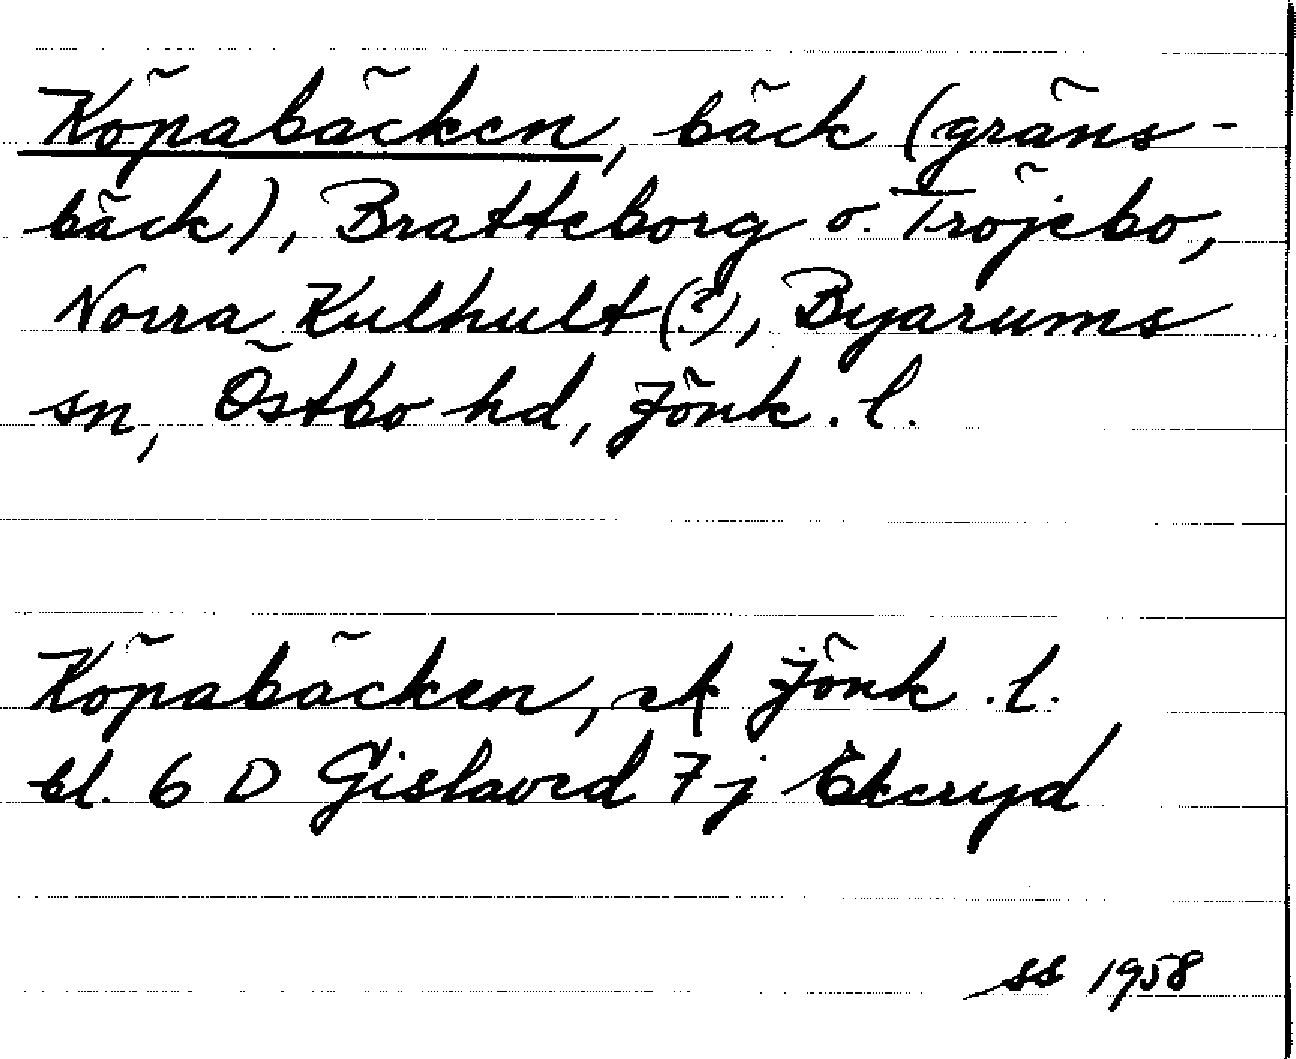 Köpabäcken, bäck (gräns-
bäck), Bratteborg o. Tröjebo,
Norra Kulhult(?), Byarums
sn, Östbo hd, Jönk. l.
Köpabäcken, ek Jönk. l.
bl. 6 D Gislaved 7 j Ekeryd
ss 1958